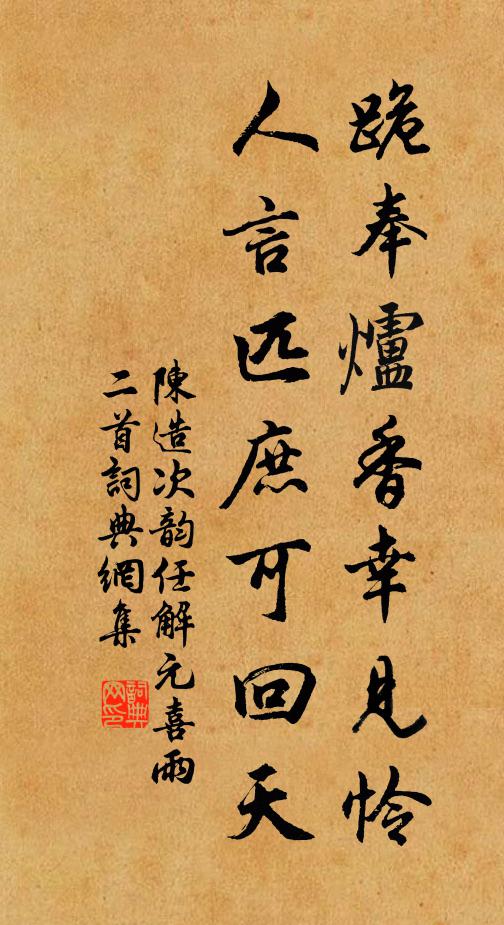 跪奉爐香幸見怜
人言匹庶可回天
陳造次韵任解元喜雨
二首詞典網集
詞典网印